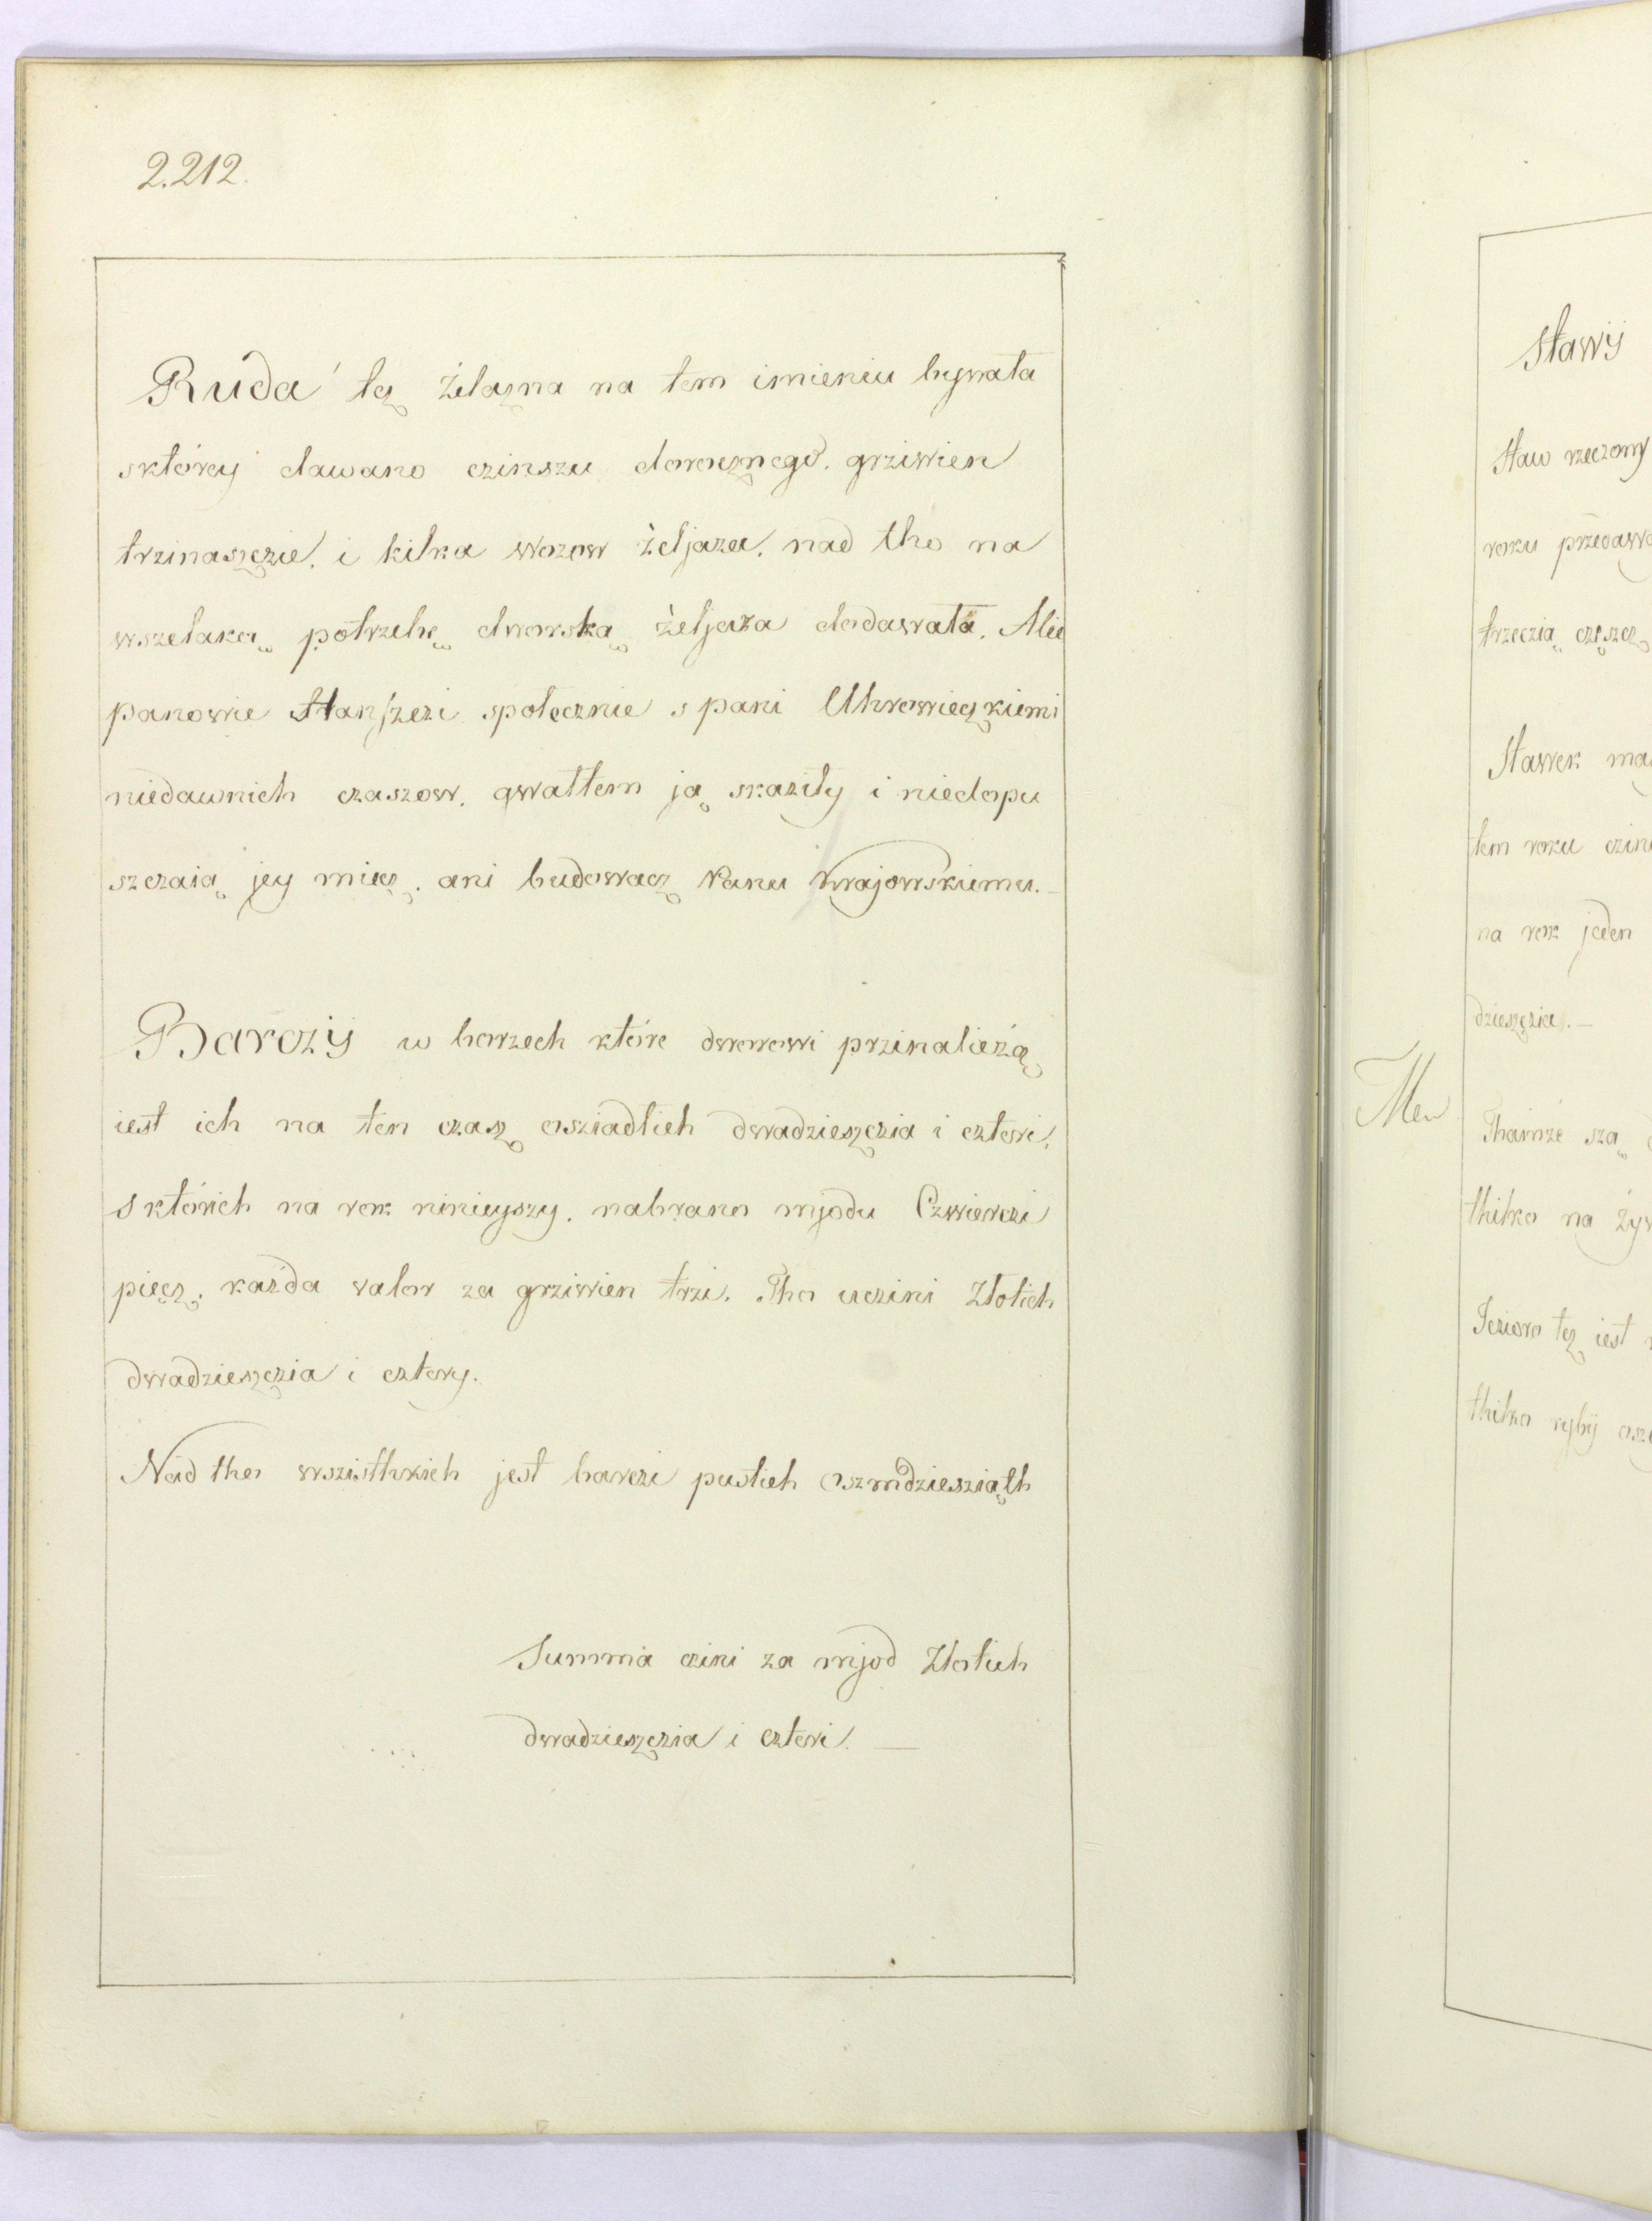 2.212.
Ruda tęż żelazna na tem imieniu bywała
sktórey dawano czinszu dorocznego. grziwien
trzinasczie. i kilka wozow żeljaza. nad tho na
wszelaką potrzebę dworską żeljaza dodawała. Alie
panowie Stanszczi społecznie s pani Uhrowieczkiemi
niedawnich czaszow. gwałtem ją skaziły i niedopu
szczaią jey miecz. ani budowacz Panu Krajowskiemu. —
Barczÿ w borzech które dworowi przinalieżą
iest ich na ten czasz osziadlich dwadziesczia i czteri.
s których na rok ninieyszy. nabrano mjodu Czwierczi
pięcz. każda valor za grziwien trzi. Tho uczini Złotich
dwadziesczia i cztery.
Nad tho wszisthkich jest barczi pustich oszmdziesziąth
Summa czini za mjod Złotich
dwadziesczia i czteri. —
Stawÿ
Staw rzeczony
roku przedawa
trzeczią częscz
Stawek ma
tem roku czin
na rok jeden
dziesczia. —
Men
Thamże szą
thilko na żyw
Jezioro tęż iest
thilko rybÿ